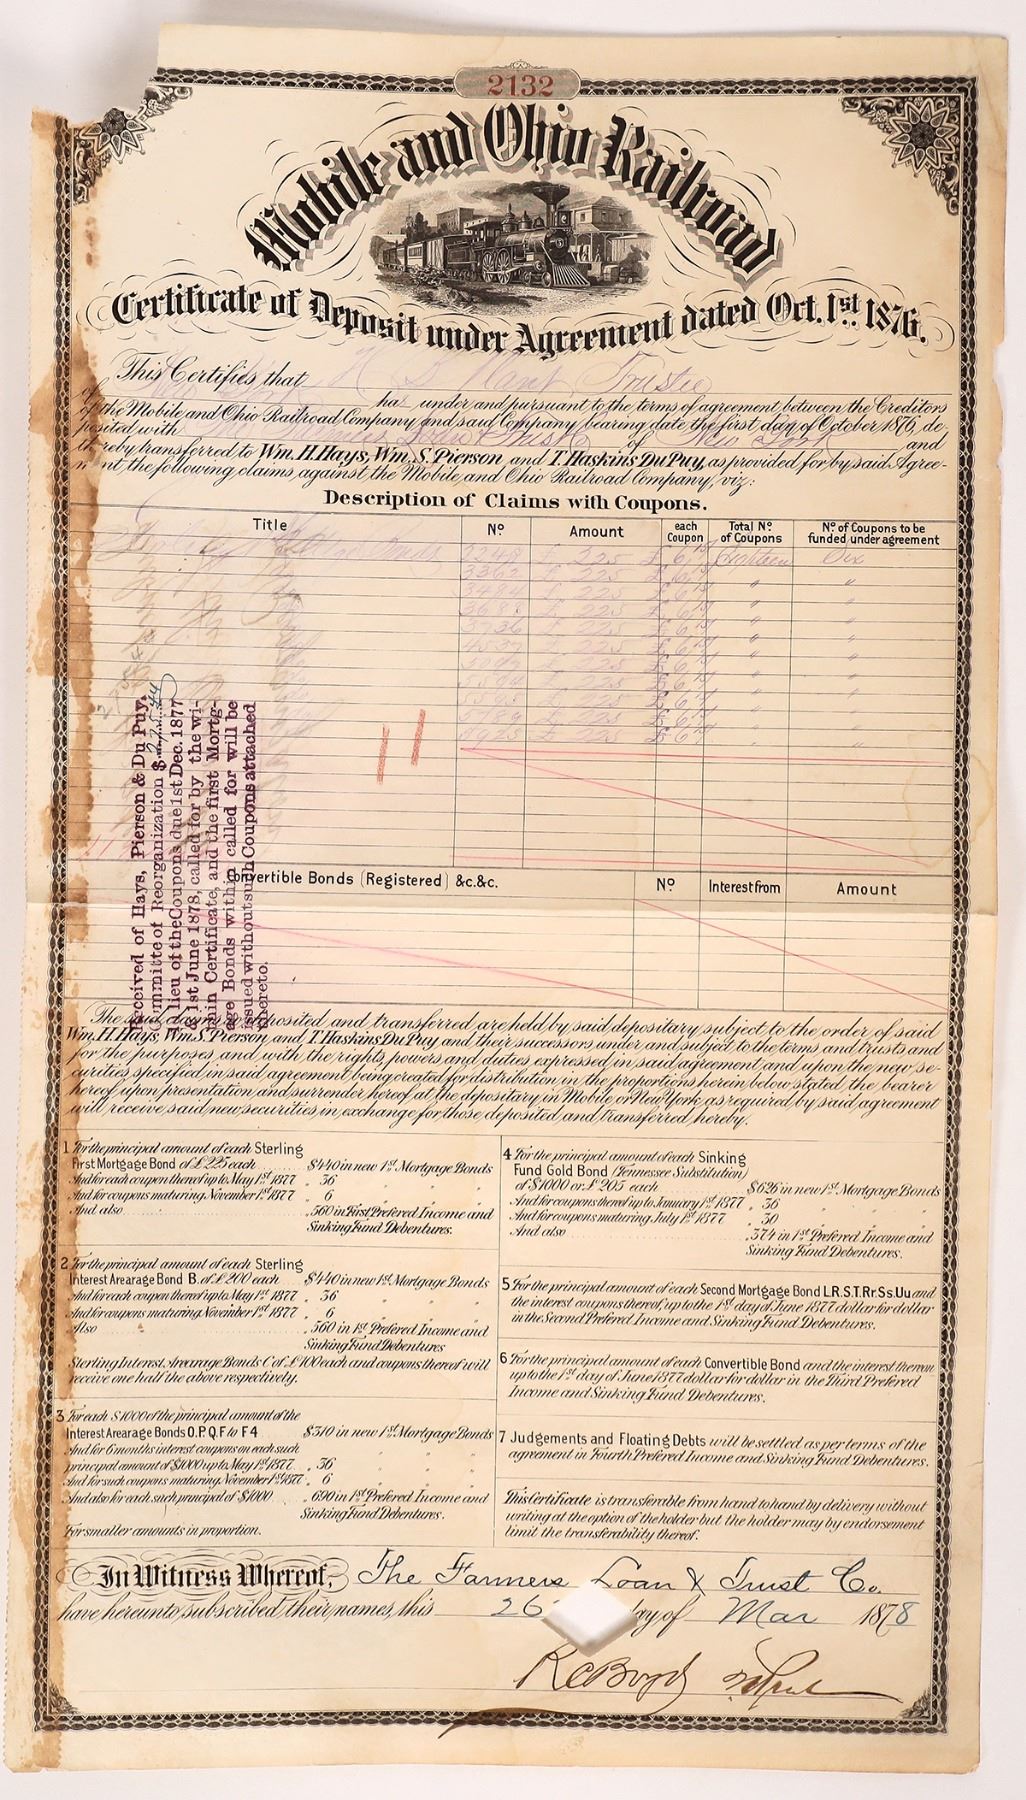 2132
Mobile and Ohio Railroad
Certificate of Deposit under Agreement dated Oct. 1st 1876.
This Certifies that H Trustee
of ha under and pursuant to the terms of agreement between the Creditors
of the Mobile and Ohio Railroad Company and said Company bearing date the first day of October 1876, de-
posited with Loan & Trust of New York and
thereby transferred to Wm. H. Hays, Wm. S. Pierson and T. Haskins Du Puy, as provided for by said Agree-
nt the following claims against the Mobile and Ohio Railroad Company, viz:
Description of Claims with Coupons.
Title No. Amount each Coupon Total No. of Coupons No. of Coupons to be funded under agreement
Bonds £ 225 £ 6 Eighteen Six
3362 £ 225 £ 6 " "
3484 £ 225 £ 6 " "
3688 £ 225 £ 6 " "
3736 £ 225 £ 6 " "
£ 225 £ 6 " "
£ 225 £ 6 " "
£ 225 £ 6 " "
£ 225 £ 6 " "
5789 £ 225 £ 6 " "
£ 225 £ 6 " "
11
Received of Hays, Pierson & Du Puy,
Committee of Reorganization $
in lieu of the Coupons due 1st Dec. 1877
& 1st June 1878, called for by the wi-
thin Certificate, and the first Mortg-
age Bonds within called for will be
issued without such Coupons attached
thereto.
Convertible Bonds (Registered) &c.&c. No. Interest from Amount
The said claims so deposited and transferred are held by said depositary subject to the order of said
Wm. H. Hays, Wm. S. Pierson and T. Haskins Du Puy and their successors under and subject to the terms and trusts and
for the purposes and with the rights, powers and duties expressed in said agreement and upon the new se-
curities specified in said agreement being created for distribution in the proportions herein below stated the bearer
hereof upon presentation and surrender hereof at the depositary in Mobile or New York as required by said agreement
will receive said new securities in exchange for those deposited and transferred hereby.
1 For the principal amount of each Sterling
First Mortgage Bond of £225 each $440 in new 1st Mortgage Bonds
And for each coupon thereof up to May 1st 1877 " 36 " " "
And for coupons maturing November 1st 1877 " 6 " " "
And also " 560 in First Prefered Income and
Sinking Fund Debentures.
2 For the principal amount of each Sterling
Interest Arearage Bond B. of £200 each $440 in new 1st Mortgage Bonds
And for each coupon thereof up to May 1st 1877 " 36 " " "
And for coupons maturing November 1st 1877 " 6 " " "
Also " 560 in 1st Prefered Income and
Sinking Fund Debentures
Sterling Interest Arearage Bonds C of £100 each and coupons thereof will
receive one half the above respectively.
3 For each $1000 of the principal amount of the
Interest Arearage Bonds O.P.Q.F to F4 $310 in new 1st Mortgage Bonds
And for 6 months interest coupons on each such
principal amount of $1000 up to May 1st 1877 " 36 " " "
And for such coupons maturing November 1st 1877 " 6 " " "
And also for each such principal of $1000 " 690 in 1st Prefered Income and
Sinking Fund Debentures.
For smaller amounts in proportion.
4 For the principal amount of each Sinking
Fund Gold Bond (Tennessee Substitution)
of $1000 or £205 each $626 in new 1st Mortgage Bonds
And for coupons thereof up to January 1st 1877 " 36 " " "
And for coupons maturing July 1st 1877 " 30 " " "
And also " 374 in 1st Prefered Income and
Sinking Fund Debentures.
5 For the principal amount of each Second Mortgage Bond L.R.S.T.Rr.Ss.Uu and
the interest coupons thereof up to the 1st day of June 1877 dollar for dollar
in the Second Prefered Income and Sinking Fund Debentures.
6 For the principal amount of each Convertible Bond and the interest thereon
up to the 1st day of June 1877 dollar for dollar in the Third Prefered
Income and Sinking Fund Debentures.
7 Judgements and Floating Debts will be settled as per terms of the
agreement in Fourth Prefered Income and Sinking Fund Debentures.
This Certificate is transferable from hand to hand by delivery without
writing at the option of the holder but the holder may by endorsement
limit the transferability thereof.
In Witness Whereof, The Farmers Loan & Trust Co.
have hereunto subscribed their names, this 26 day of Mar 1878
R C Boyd